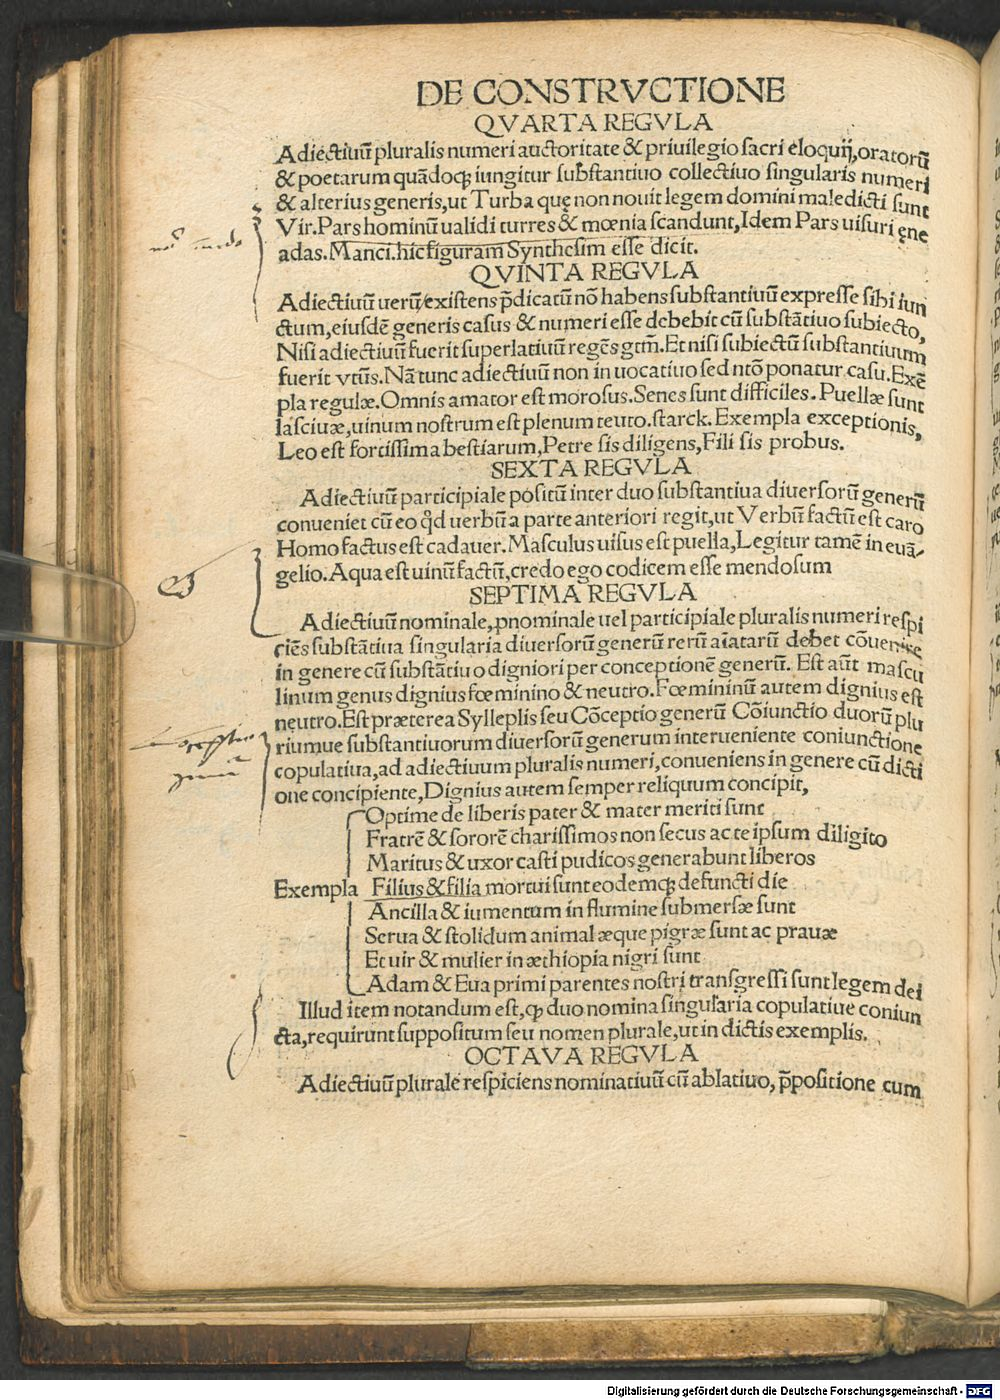 DE CONSTRVCTIONE
QVARTA REGVLA
Adiectiuū pluralis numeri auctoritate & priuilegio sacri eloquij, oratorū
& poetarum quādoqꝫ iungitur substantiuo collectiuo singularis numeri
& alterius generis, ut Turba quę non nouit legem domini maledicti sunt
Vir. Pars hominū ualidi turres & mœnia scandunt, Idem Pars uisuri ęne
adas. Manci. hic figuram Synthesim esse dicit.
QVINTA REGVLA
Adiectiuū uerū, existens p̄dicatū nō habens substantiuū expresse sibi iun
ctum, eiusdē generis casus & numeri esse debebit cū substātiuo subiecto,
Nisi adiectiuū fuerit superlatiuū regēs gtm̄. Et nisi subiectū substantiuum
fuerit vtūs. Nā tunc adiectiuū non in uocatiuo sed ntō ponatur casu. Exē
pla regulæ. Omnis amator est morosus. Senes sunt difficiles. Puellæ sunt
lasciuæ, uinum nostrum est plenum teuto. starck. Exempla exceptionis,
Leo est fortissima bestiarum, Petre sis diligens, Fili sis probus.
SEXTA REGVLA
Adiectiuū participiale positū inter duo substantiua diuersorū generū
conueniet cū eo qd̕ uerbū a parte anteriori regit, ut Verbū factū est caro
Homo factus est cadauer. Masculus uisus est puella, Legitur tamē in euā-
gelio. Aqua est uinū factū, credo ego codicem esse mendosum
SEPTIMA REGVLA
Adiectiuū nominale, ꝓnominale uel participiale pluralis numeri respi
ciēs substātiua singularia diuersorū generū rerū aīatarū debet cōuenire
in genere cū substātiuo digniori per conceptionē generū. Est aūt mascu
linum genus dignius fœminino & neutro. Fœmininū autem dignius est
neutro. Est præterea Syllepsis seu Cōceptio generū Cōiunctio duorū plu
riumue substantiuorum diuersorū generum interueniente coniunctione
copulatiua, ad adiectiuum pluralis numeri, conueniens in genere cū dicti
one concipiente, Dignius autem semper reliquum concipit,
Optime de liberis pater & mater meriti sunt
Fratrē & sororē charissimos non secus ac te ipsum diligito
Maritus & uxor casti pudicos generabunt liberos
Exempla Filius & filia mortui sunt eodemqꝫ defuncti die
Ancilla & iumentum in flumine submersæ sunt
Serua & stolidum animal æque pigræ sunt ac prauæ
Et uir & mulier in æthiopia nigri sunt
Adam & Eua primi parentes nostri transgressi sunt legem dei
Illud item notandum est, ꝙ duo nomina singularia copulatiue coniun
cta, requirunt suppositum seu nomen plurale, ut in dictis exemplis.
OCTAVA REGVLA
Adiectiuū plurale respiciens nominatiuū cū ablatiuo, p̄positione cum
Digitalisierung gefördert durch die Deutsche Forschungsgemeinschaft - DFG